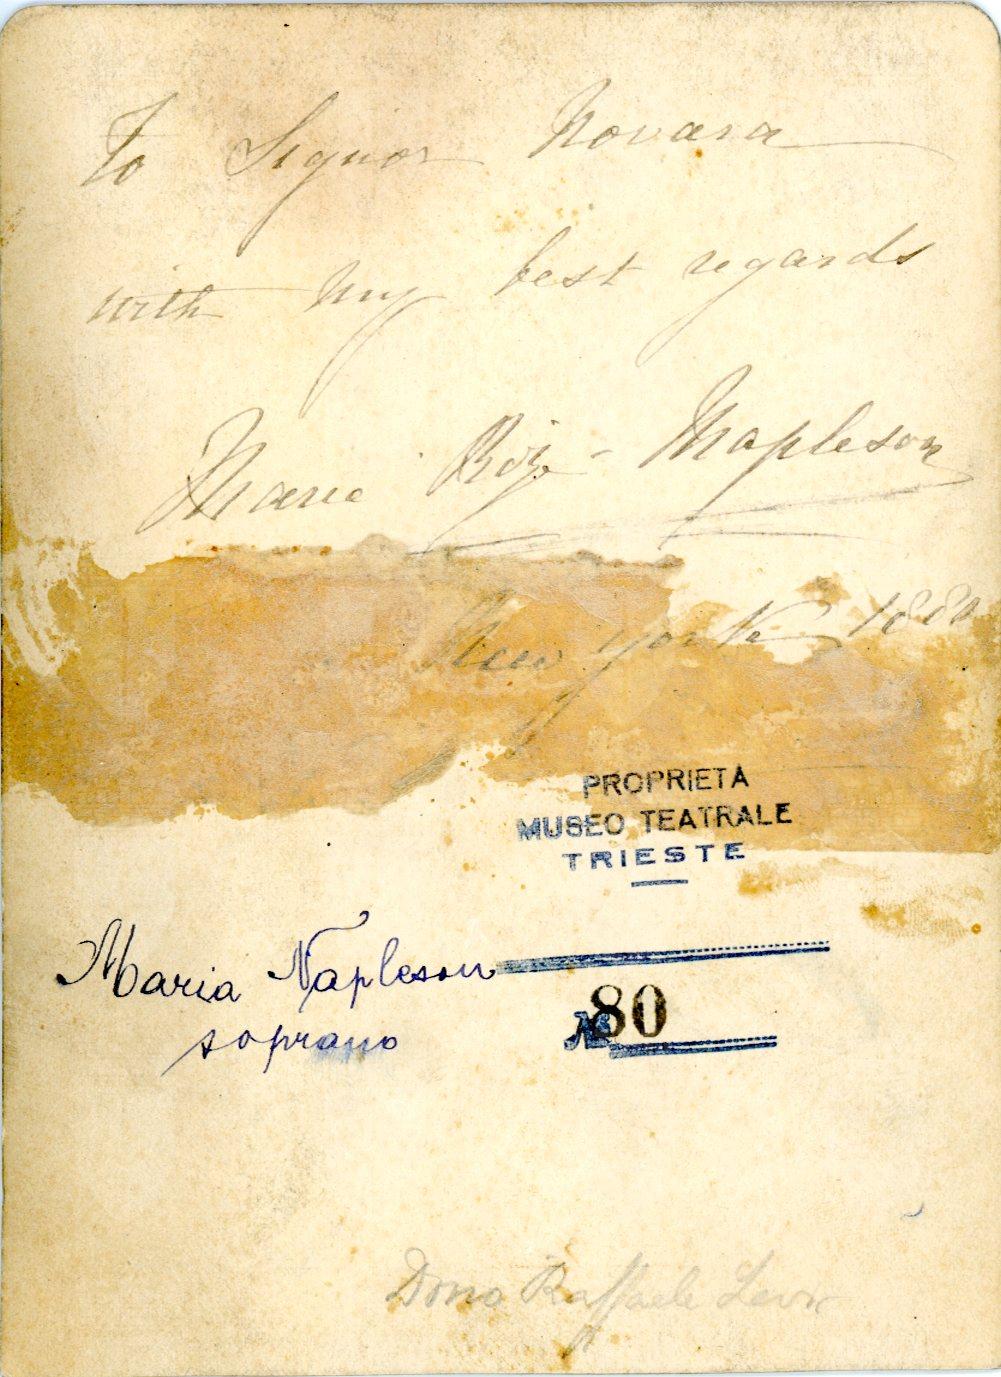 To Signor Novara
with my best regards
Marie Roze-Mapleson
New York 1880
PROPRIETÀ
MUSEO TEATRALE
TRIESTE
Maria Napleson
soprano
№ 80
Dono Raffaele